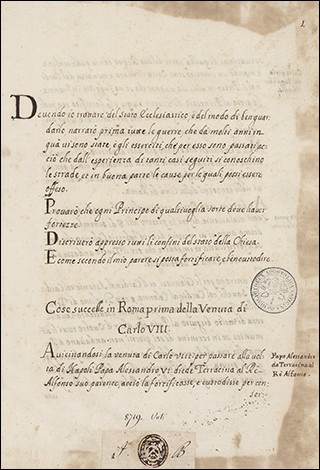 1
Devendo io trattare del Stato Ecclesiastico, e del modo di ben guar
darlo narrarò prima tutte le guerre che da molti anni in
quà vi sono state, e gli esserciti, che per esso sono passati, ac
ciò che dall'esperienza di tanti casi seguiti si conoschino
le strade, et in buona parte le cause per le quali possi essere
offeso.
Provarò che ogni Principe di qualsivoglia sorte deve haver
fortezze.
Discriverò appresso tutti li confini del stato della Chiesa.
E come secondo il mio parere si possa fortificare, e ben custodire.
Cose successe in Roma prima della Venuta di
Carlo VIII.
Avicinandosi la venuta di Carlo VIII. per passare alla vol
ta di Napoli Papa Alessandro VI. diede Terracina al Rè
Alfonso suo parente, acciò la fortificasse, e custodisse per con
ser-
Papa Alessandro
da Terracina al
Rè Alfonso.
8719.
B